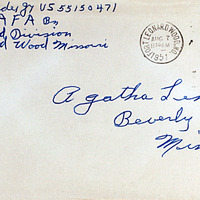 US 55150471
AFA Bn
Division
d Wood Missouri
FORT LEONARD WOOD, MO.
AUG 7
1951
Agatha Les
Beverly